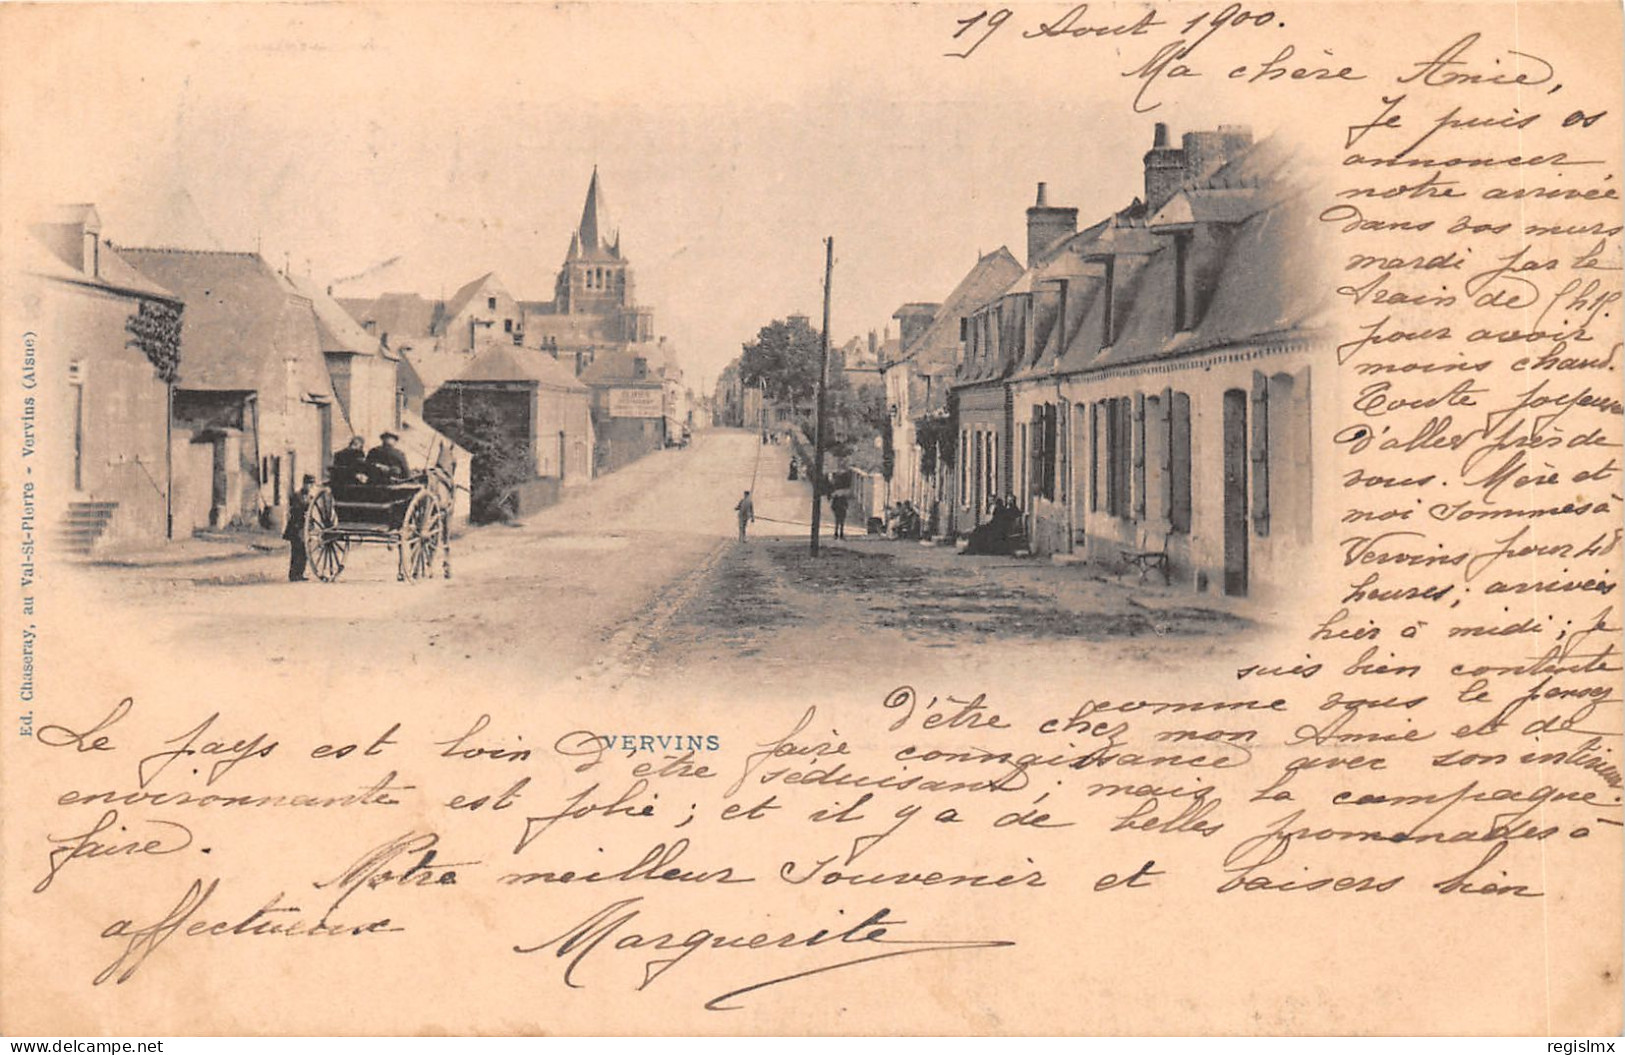 19 Aout 1900.
Ma chère Amie,
Je puis os
annoncer
notre arrivée
dans vos murs
mardi par le
train de 5h15.
pour avoir
moins chaud.
Toute joyeuse
d'aller près de
vous. Mère et
moi sommes à
Vervins pour 48
heures; arrivées
hier à midi; je
suis bien contente
comme vous le pensez
d'être chez mon Amie et de
faire connaissance avec son intérieur.
Le pays est loin d'être séduisant; mais la campagne
environnante est jolie; et il y a de belles promenades à
faire.
Notre meilleur souvenir et baisers bien
affectueux
Marguerite
VERVINS
Ed. Chaseray, au Val-St-Pierre - Vervins (Aisne)
regislmx